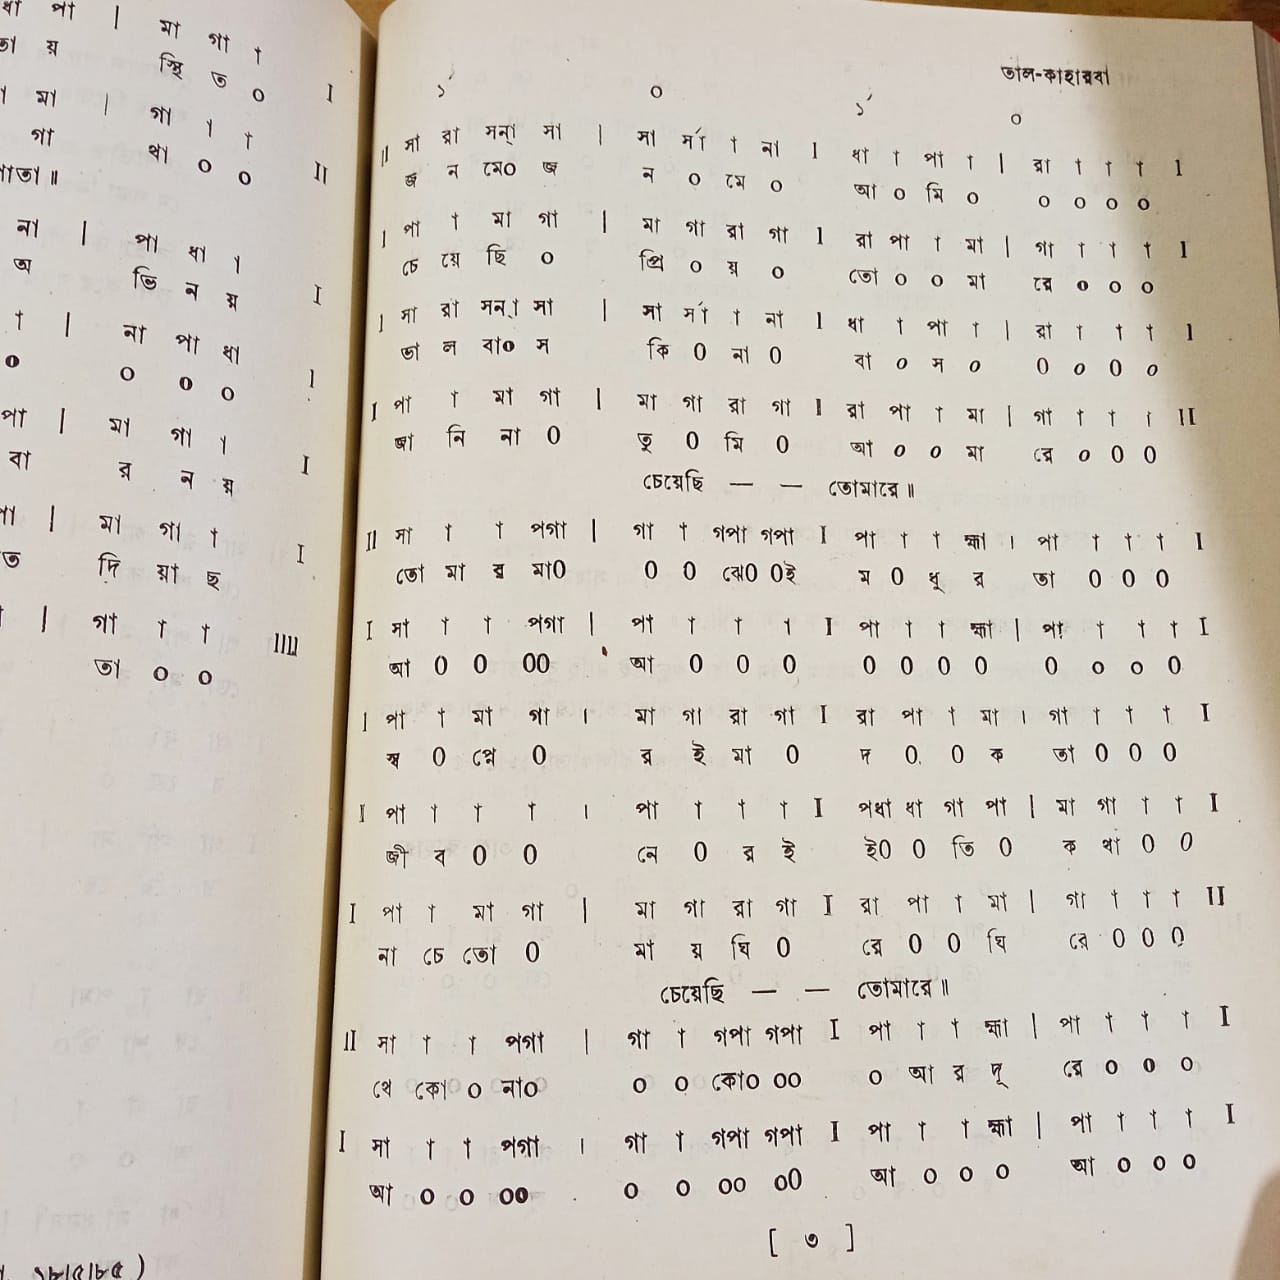 ধা পা | মা গা া
য় স্থি ত ০ I
মা | গা া া
গা ধা ০ ০ II
না | পা ধা া
অ ভি ন য় I
া | না পা ধা
০ ০ ০ ০ I
পা | মা গা া
বা র ন য় I
মা গা া
ত দি য়া ছ I
| গা া া IIII
তা ০ ০
তাল-কাহারবা
১´ ০ ১´ ০
II সা রা সন্‌া সা | সা র্সা া না I ধা া পা া | রা া া া I
জ ন মে০ জ ন ০ মে ০ আ ০ মি ০ ০ ০ ০ ০
I পা া মা গা | মা গা রা গা I রা পা া মা | গা া া া I
চে য়ে ছি ০ প্রি ০ য় ০ তো ০ ০ মা রে ০ ০ ০
I সা রা সন্‌া সা | সা র্সা া না I ধা া পা া | রা া া া I
ভা ল বা০ স কি ০ না ০ বা ০ স ০ ০ ০ ০ ০
I পা া মা গা | মা গা রা গা I রা পা া মা | গা া া া II
জা নি না ০ তু ০ মি ০ আ ০ ০ মা রে ০ ০ ০
চেয়েছি — — তোমারে॥
II সা া া পগা | গা া গপা গপা I পা া া হ্মা । পা া া া I
তো মা র মা০ ০ ০ ঝে০ ০ই ম ০ ধু র তা ০ ০ ০
I সা া া পগা | পা া া া I পা া া হ্মা | পা া া া I
আ ০ ০ ০০ আ ০ ০ ০ ০ ০ ০ ০ ০ ০ ০ ০
I পা া মা গা । মা গা রা গা I রা পা া মা । গা া া া I
স্ব ০ প্নে ০ র ই মা ০ দ ০ ০ ক তা ০ ০ ০
I পা া া া । পা া া া I পধা ধা গা পা | মা গা া া I
জী ব ০ ০ নে ০ র ই ই০ ০ তি ০ ক থা ০ ০
I পা া মা গা | মা গা রা গা I রা পা া মা | গা া া া II
না চে তো ০ মা য় ঘি ০ রে ০ ০ ঘি রে ০ ০ ০
চেয়েছি — — তোমারে॥
II সা া া পগা | গা া গপা গপা I পা া া হ্মা | পা া া া I
থে কো ০ না০ ০ ০ কো০ ০০ ০ আ র দূ রে ০ ০ ০
I সা া া পগা । গা া গপা গপা I পা া া হ্মা | পা া া া I
আ ০ ০ ০০ ০ ০ ০০ ০০ আ ০ ০ ০ আ ০ ০ ০
[ ৩ ]